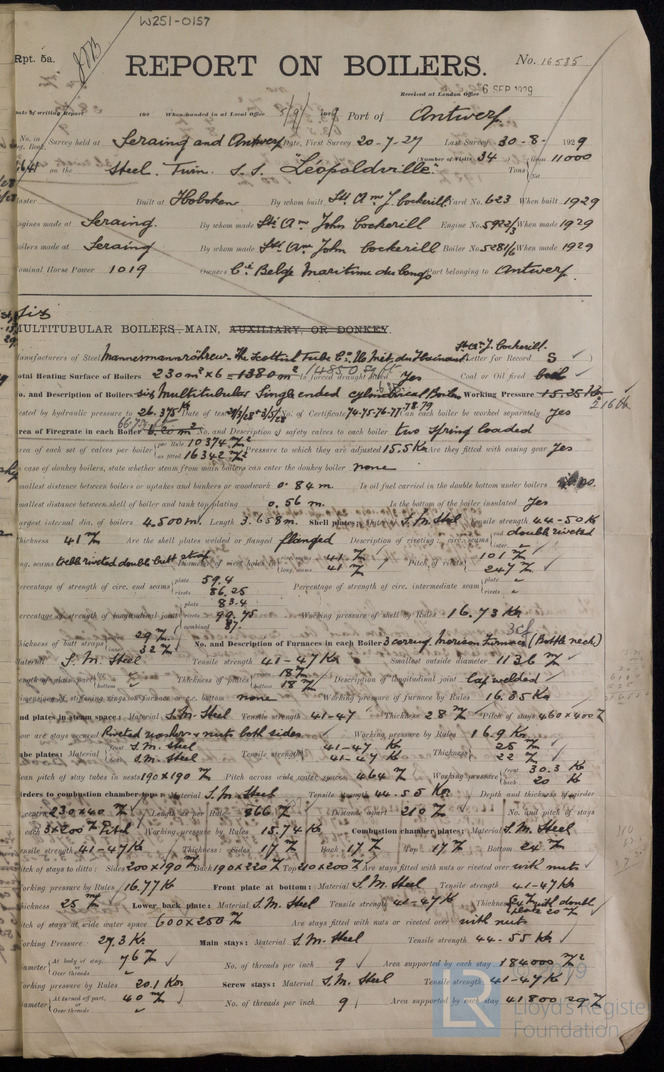 W251-0157
Rpt. 5a.
REPORT ON BOILERS.
No. 16535
Received at London Office 6 SEP 1929
Date of writing Report 192 When handed in at Local Office 5/9/ 1929 Port of Antwerp
No. in Survey held at Seraing and Antwerp Date, First Survey 20-7-27 Last Survey 30-8- 1929
on the Steel. Twin. S. S. "Leopoldville" (Number of Visits 34 Gross 11000 Tons
Master Built at Hoboken By whom built Sté Ame J. Cockerill Yard No. 623 When built 1929
Engines made at Seraing. By whom made Sté Ame John Cockerill Engine No. 5922/3 When made 1929
Boilers made at Seraing By whom made Sté Ame John Cockerill Boiler No. 5281/6 When made 1929
Nominal Horse Power 1019 Owners Cie Belge Maritime du Congo Port belonging to Antwerp.
MULTITUBULAR BOILERS, MAIN, AUXILIARY, OR DONKEY.
Sté Ame J. Cockerill.
Manufacturers of Steel Mannesmannröhren- The Scottish Tube Co. Letter for Record S
Total Heating Surface of Boilers 230 m² x 6 = 1380 m² 14850 sq ft Is forced draught fitted Yes Coal or Oil fired both
No. and Description of Boilers six Multitubular Single ended cylindrical Boilers Working Pressure 15.25 Ks
Tested by hydraulic pressure to 26.375 Ks Date of test No. of Certificate 74-75-76-77-78-79 Can each boiler be worked separately Yes
Area of Firegrate in each Boiler No. and Description of safety valves to each boiler two spring loaded
Area of each set of valves per boiler per Rule 10374 as fitted 16342 Pressure to which they are adjusted 15.5 Ks Are they fitted with easing gear Yes
In case of donkey boilers, state whether steam from main boilers can enter the donkey boiler none
Smallest distance between boilers or uptakes and bunkers or woodwork 0.84 m. Is oil fuel carried in the double bottom under boilers no.
Smallest distance between shell of boiler and tank top plating 0.56 m. Is the bottom of the boiler insulated Yes
Largest internal dia. of boilers 4.500 m. Length 3.658 m. Shell plates: Material S.M. Steel Tensile strength 44-50 K
Thickness 41 Are the shell plates welded or flanged flanged Description of riveting: circ. seams end double riveted
long. seams treble riveted double butt strap Diameter of rivet holes in circ. seams 41 long. seams 41 Pitch of rivets 101 247
Percentage of strength of circ. end seams plate 59.4 rivets 86.25 Percentage of strength of circ. intermediate seam plate rivets
Percentage of strength of longitudinal joint plate 83.4 rivets combined 87. Working pressure of shell by Rules 16.73 Ks
Thickness of butt straps 29 32 No. and Description of Furnaces in each Boiler 3 corrug. Morison Furnaces (Bottle neck)
Material S.M. Steel Tensile strength 41-47 Ks Smallest outside diameter 1136
Length of plain part Thickness of plates 18 bottom 18 Description of longitudinal joint lap welded
Dimensions of stiffening rings on furnace or c.c. bottom none Working pressure of furnace by Rules 16.35 Ks
End plates in steam space: Material S.M. Steel Tensile strength 41-47 Thickness 28 Pitch of stays 460 x 400
How are stays secured Riveted washer & nuts both sides Working pressure by Rules 16.9 Ks
Tube plates: Material front S.M. Steel back S.M. Steel Tensile strength 41-47 Ks 41-47 Ks Thickness 25 22
Mean pitch of stay tubes in nests 190 x 190 Pitch across wide water spaces 464 Working pressure front 30.3 Ks back 20 Ks
Girders to combustion chamber tops: Material S.M. Steel Tensile strength 44-55 Ks Depth and thickness of girder
at centre 230 x 40 Length as per Rule 866 Distance apart 210 No. and pitch of stays
in each 3 x 200 Pitch Working pressure by Rules 15.74 Ks Combustion chamber plates: Material S.M. Steel
Tensile strength 41-47 Ks Thickness: Sides 17 Back 17 Top 17 Bottom 24
Pitch of stays to ditto: Sides 200 x 190 Back 190 x 220 Top 210 x 200 Are stays fitted with nuts or riveted over with nuts
Working pressure by Rules 16.77 Ks Front plate at bottom: Material S.M. Steel Tensile strength 41-47 Ks
Thickness 25 Lower back plate: Material S.M. Steel Tensile strength 41-47 Ks Thickness with double plate 20
Pitch of stays at wide water space 600 x 250 Are stays fitted with nuts or riveted over with nuts
Working Pressure 27.3 Ks Main stays: Material S.M. Steel Tensile strength 44-55 Ks
Diameter At body of stay, 76 or Over threads No. of threads per inch 9 Area supported by each stay 184000
Working pressure by Rules 20.1 Ks Screw stays: Material S.M. Steel Tensile strength 41-47 Ks
Diameter At turned off part, 40 or Over threads No. of threads per inch 9 Area supported by each stay 41800
© 2019
LR
Lloyd's Register
Foundation